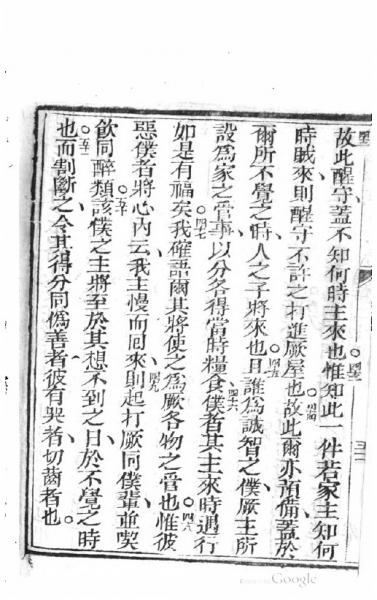 故此醒守蓋不知何時主來也○四三惟知此一件若家主知何
時賊來則醒守不許之打進厥屋也○四四故此爾亦預備蓋於
爾所不覺之時人之子將來也○四五且誰為誠智之僕厥主所
設為家之管事以分各得當時糧食○四六僕者其主來時遇行
如是有福矣○四七我確語爾其將使之為厥各物之管也○四八惟彼
惡僕者將心內云我主慢而回來○四九則起打厥同僕輩並喫
飲同醉類○五十該僕之主將至於其想不到之日於不覺之時
也○五一而割斷之令其得分同偽善者彼有哭者切齒者也○
Google